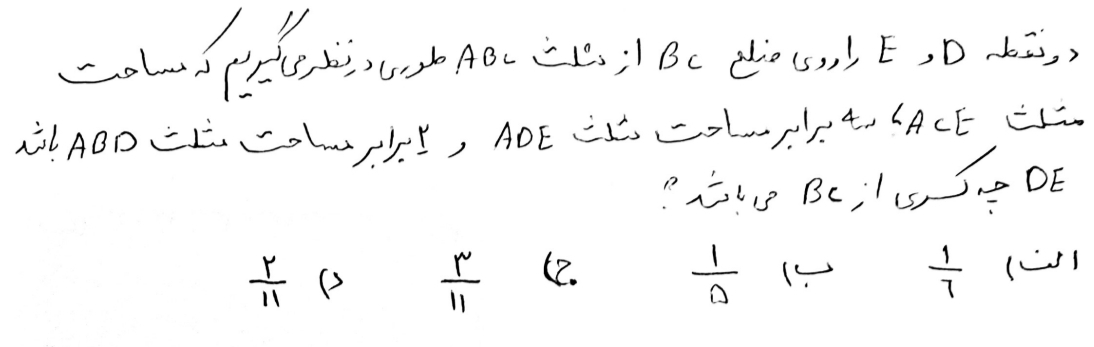 دو نقطه D و E را روی ضلع BC از مثلث ABC طوری در نظر می‌گیریم که مساحت
مثلث ACE، برابر مساحت مثلث ADE و ۲ برابر مساحت مثلث ABD باشد
DE چه کسری از BC می باشد؟
الف) ۱/۶ ب) ۱/۵ ج) ۳/۱۱ د) ۲/۱۱